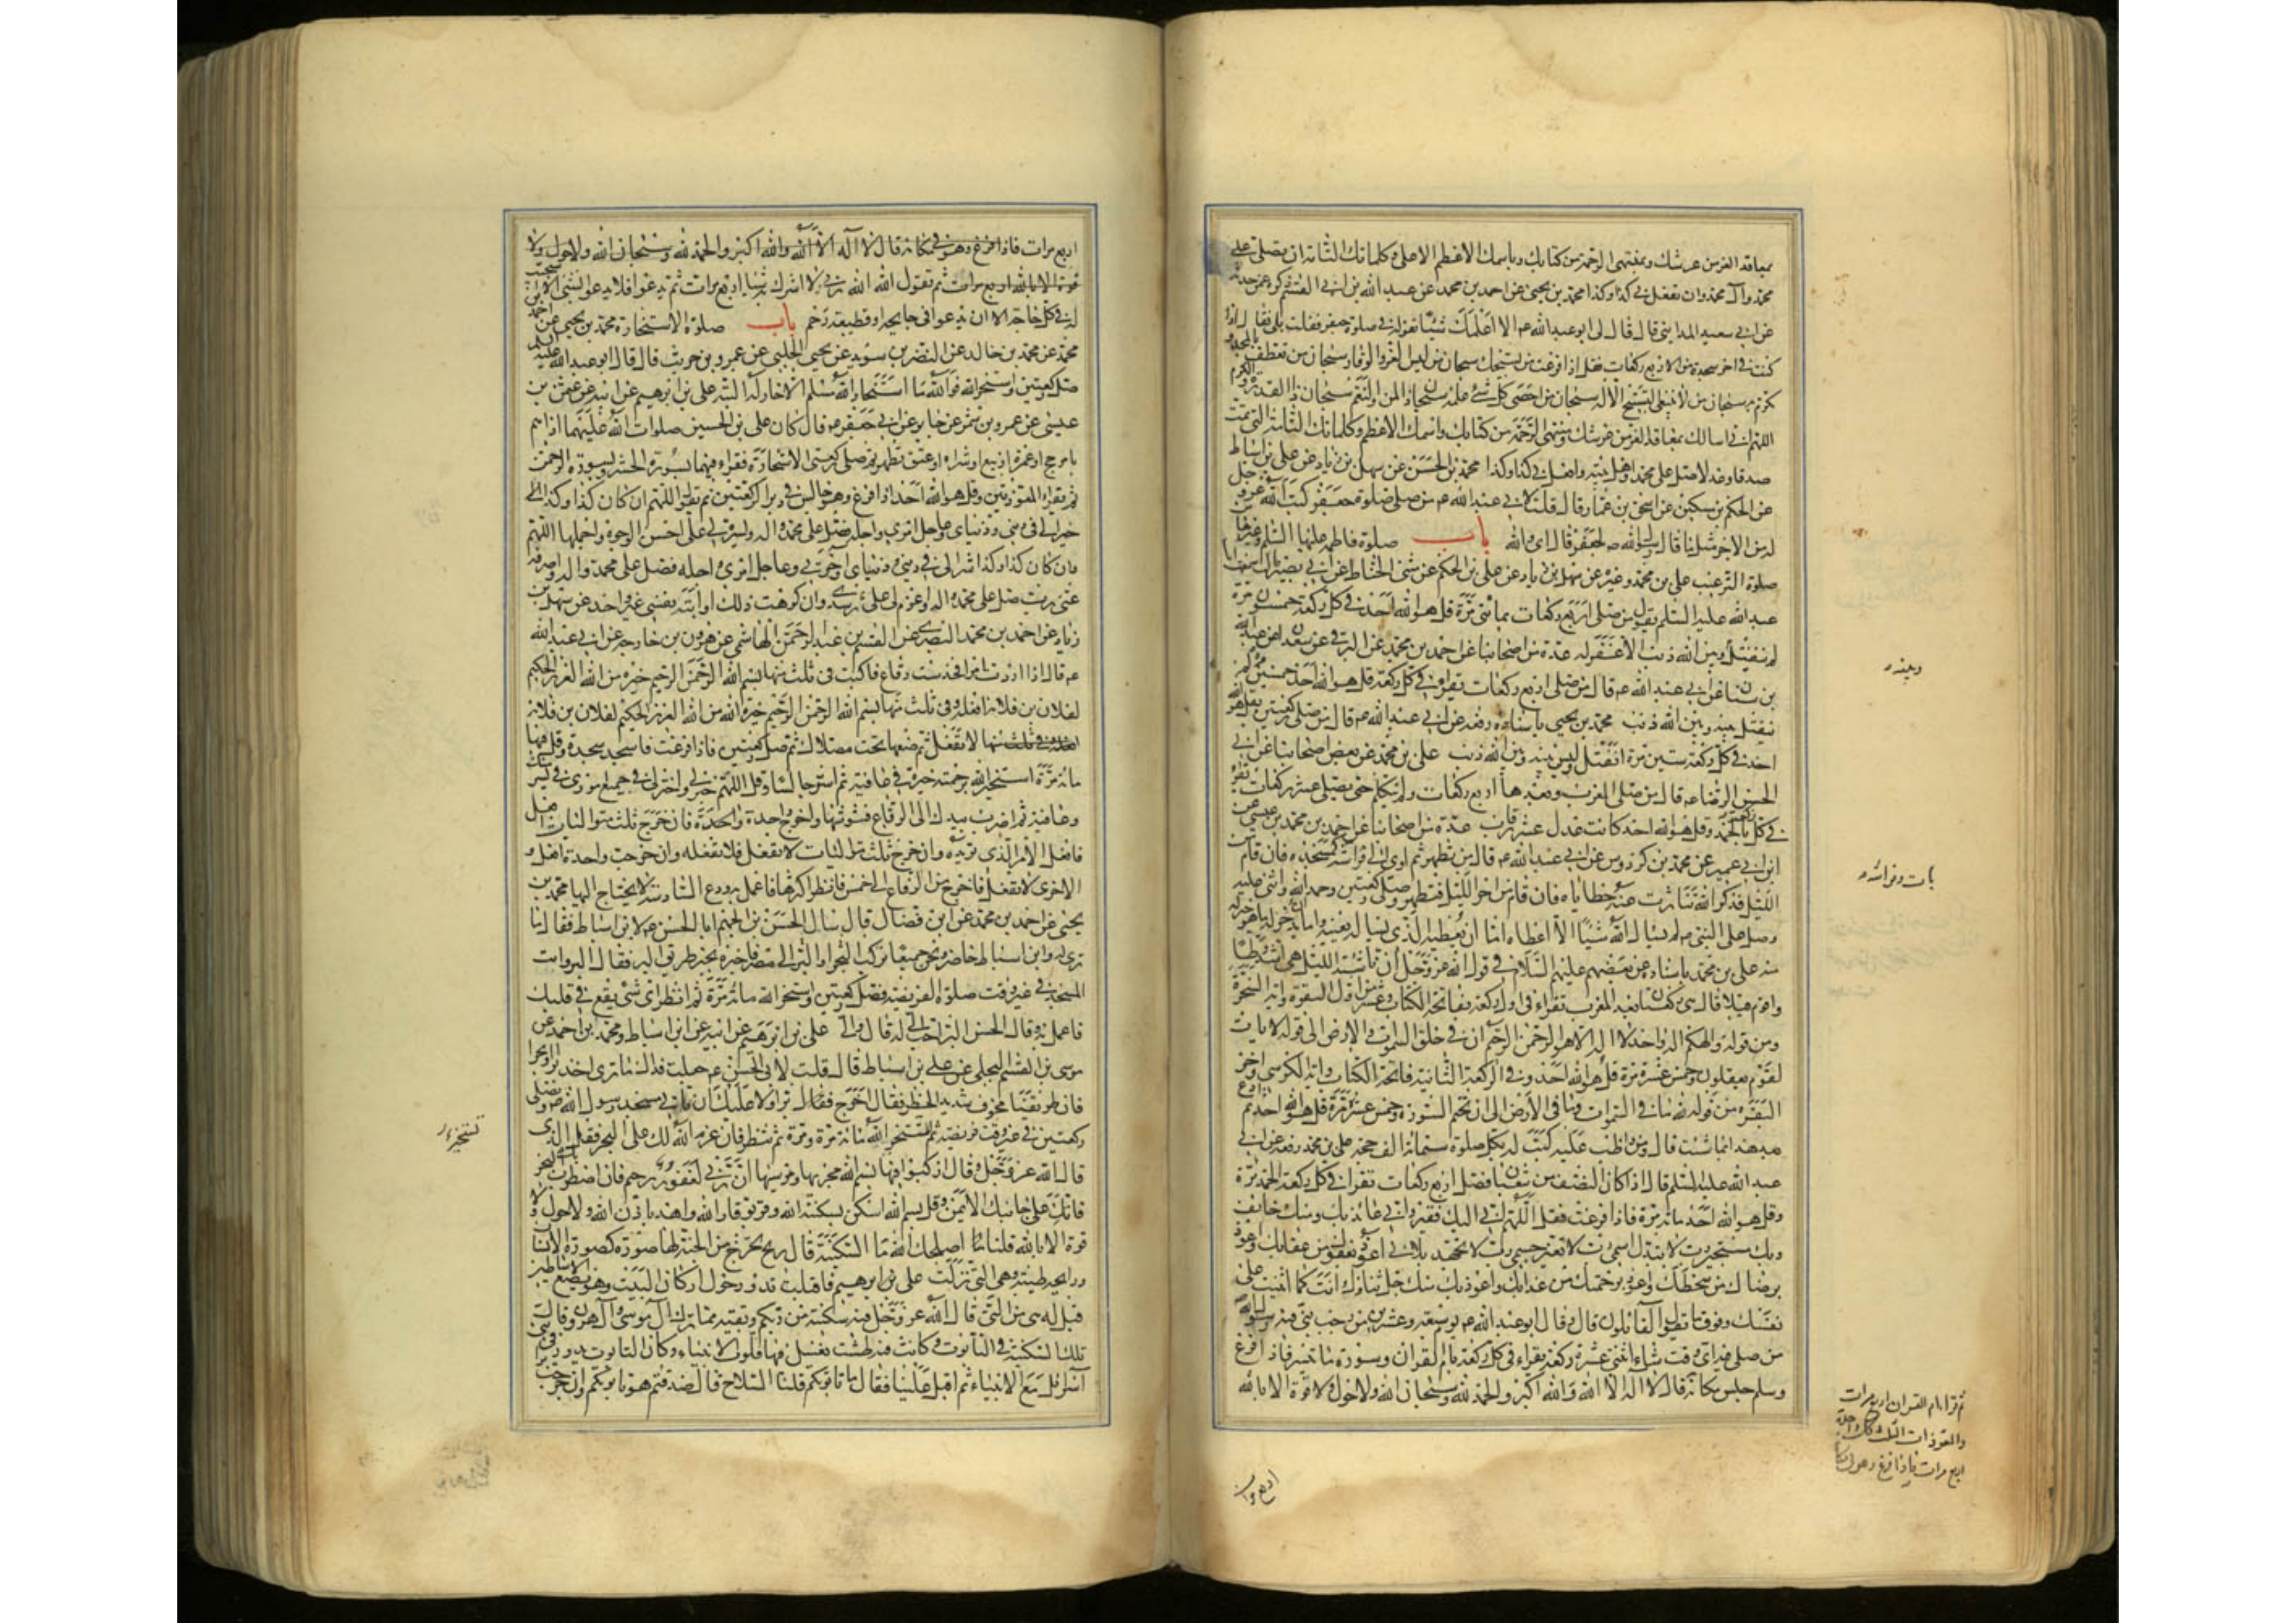 بمعاقد العز من عرشك وبمنتهى الرحمة من كتابك وباسمك الاعظم الاعلى وكلماتك التامة ان تصلي على
محمد وآل محمد وان تفعل بي كذا وكذا محمد بن يحيى عن احمد بن محمد عن عبد الله بن ابي القسم ذكره عمن حدثه
عن ابي سعيد المدايني قال قال لي ابو عبد الله ع الا اعلمك شيئا تقوله في صلوة جعفر فقلت بلى فقال اذا
كنت في اخر سجدة من الاربع ركعات فقل اذا فرغت من تسبيحك سبحان من لبس العز والوقار وسبحان من تعطف بالمجد و
تكرم به سبحان من لا ينبغي التسبيح الا له سبحان من احصى كل شئ علمه سبحان ذي المن والنعم سبحان ذي القدرة والكرم
اللهم اني اسالك بمعاقد العز من عرشك ومنتهى الرحمة من كتابك واسمك الاعظم وكلماتك التامة التي تمت
صدقا وعدلا صل على محمد واهل بيته وافعل بي كذا وكذا محمد بن الحسن عن سهل بن زياد عن علي بن اسباط
عن الحكم بن مسكين عن اسحق بن عمار قال قلت لابي عبد الله ع من صلى صلوة جعفر كتب الله عز وجل
له من الاجر مثل ما قال رسول الله ص لجعفر قال اي والله باب صلوة فاطمة عليها السلم وغيرها من
صلوة الترغيب علي بن محمد وغيره عن سهل بن زياد عن علي بن الحكم عن مثنى الحناط عن ابي بصير قال سمعت ابا
عبد الله عليه السلم يقول من صلى اربع ركعات بمائتي مرة قل هو الله احد في كل ركعة خمسون مرة
لم ينفتل وبينه وبين الله ذنب الا غفر له عدة من اصحابنا عن احمد بن محمد عن البرقي عن سعدان عن عبد الله
بن سنان عن ابي عبد الله ع قال من صلى اربع ركعات تقرا في كل ركعة قل هو الله احد خمسين مرة لم
ينفتل وبينه وبين الله ذنب محمد بن يحيى باسناده رفعه عن ابي عبد الله ع قال من صلى ركعتين بقل هو الله
احد في كل ركعة ستين مرة انفتل وليس بينه وبين الله ذنب علي بن محمد عن بعض اصحابنا عن ابي
الحسن الرضا ع قال من صلى المغرب وبعدها اربع ركعات ولم يتكلم حتى يصلي عشر ركعات يقرا
في كل ركعة بالحمد وقل هو الله احد كانت عدل عشر رقاب عدة من اصحابنا عن احمد بن محمد بن عيسى عن
ابن ابي عمير عن محمد بن كردوس عن ابي عبد الله ع قال من تطهر ثم اوى الى فراشه كمسجده فان قام من
الليل فذكر الله تناثرت عنه خطاياه فان قام من اخر الليل فتطهر وصلى ركعتين وحمد الله واثنى عليه
وصلى على النبي ص لم يسال الله شيئا الا اعطاه اما ان يعطيه الذي يسال بعينه واما ان يدخر له ما هو خير له
منه علي بن محمد باسناده عن بعضهم عليهم السلام في قول الله عز وجل ان ناشئة الليل هي اشد وطئا
واقوم قيلا قال هي ركعتان بعد المغرب تقراء في اول ركعة بفاتحة الكتاب وعشر من اول البقرة واية السخرة
ومن قوله والهكم اله واحد لا اله الا هو الرحمن الرحيم ان في خلق السموات والارض الى قوله لايات
لقوم يعقلون وخمس عشرة مرة قل هو الله احد وفي الركعة الثانية فاتحة الكتاب واية الكرسي واخر
البقرة من قوله لله ما في السموات وما في الارض الى ان تختم السورة وخمس عشرة مرة قل هو الله احد ثم ادع
بعد هذا بما شئت قال ومن واظب عليه كتب له بكل صلوة ستمائة الف حجة علي بن محمد رفعه عن ابي
عبد الله عليه السلم قال اذا كان النصف من شعبان فصل اربع ركعات تقرا في كل ركعة الحمد مرة
وقل هو الله احد مائة مرة فاذا فرغت فقل اللهم اني اليك فقير واني عائذ بك ومنك خائف
وبك مستجير رب لا تبدل اسمي رب لا تغير جسمي رب لا تجهد بلائي اعوذ بعفوك من عقابك واعوذ
برضاك من سخطك واعوذ برحمتك من عذابك واعوذ بك منك جل ثناؤك انت كما اثنيت على
نفسك وفوق ما يقول القائلون قال وقال ابو عبد الله ع يوم سبعة وعشرين من رجب نبئ فيه رسول الله
من صلى فيه اي وقت شاء اثنتي عشرة ركعة يقراء في كل ركعة بام القران وسورة ما تيسر فاذا فرغ
وسلم جلس مكانه قال لا اله الا الله والله اكبر والحمد لله وسبحان الله ولا حول ولا قوة الا بالله
وبينه
بات وفراشه
ثم قرا ام القران اربع مرات
والمعوذات الثلث كل واحدة
اربع مرات فاذا فرغ وهو في مكانه
اربع مرات
اربع مرات فاذا فرغ وهو في مكانه قال لا اله الا الله والله اكبر والحمد لله وسبحان الله ولا حول ولا
قوة الا بالله اربع مرات ثم تقول الله الله ربي لا اشرك به شيئا اربع مرات ثم يدعوا فلا يدعو بشئ الا استجيب
له في كل حاجة الا ان يدعوا في جايحة او قطيعة رحم باب صلوة الاستخارة محمد بن يحيى عن احمد بن
محمد عن محمد بن خالد عن النضر بن سويد عن يحيى الحلبي عن عمرو بن حريث قال قال ابو عبد الله عليه السلم
صل ركعتين واستخر الله فوالله ما استخار الله مسلم الا خار له البتة علي بن ابرهيم عن ابيه عن عثمن بن
عيسى عن عمرو بن شمر عن جابر عن ابي جعفر ع قال كان علي بن الحسين صلوات الله عليهما اذا هم
بامر حج او عمرة او بيع او شراء او عتق تطهر ثم صلى ركعتي الاستخارة فقراء فيهما بسورة الحشر وبسورة الرحمن
ثم يقراء المعوذتين وقل هو الله احد اذا فرغ وهو جالس في دبر الركعتين ثم يقول اللهم ان كان كذا وكذا
خيرا لي في ديني ودنياي وعاجل امري واجله فصل على محمد واله ويسره لي على احسن الوجوه واجملها اللهم
وان كان كذا وكذا شرا لي في ديني ودنياي واخرتي وعاجل امري واجله فصل على محمد واله واصرفه
عني رب صل على محمد واله واعزم لي على رشدي وان كرهت ذلك او ابته نفسي غير واحد عن سهل بن
زياد عن احمد بن محمد البصري عن القسم بن عبد الرحمن الهاشمي عن هرون بن خارجة عن ابي عبد الله
ع قال اذا اردت امرا فخذ ست رقاع فاكتب في ثلث منها بسم الله الرحمن الرحيم خيرة من الله العزيز الحكيم
لفلان بن فلانة افعله وفي ثلث منها بسم الله الرحمن الرحيم خيرة من الله العزيز الحكيم لفلان بن فلانة
لا تفعل ثم ضعها تحت مصلاك ثم صل ركعتين فاذا فرغت فاسجد سجدة وقل فيها
مائة مرة استخير الله برحمته خيرة في عافية ثم استو جالسا وقل اللهم خر لي واختر لي في جميع اموري في يسر منك
وعافية ثم اضرب بيدك الى الرقاع فشوشها واخرج واحدة واحدة فان خرج ثلث متواليات افعل
فافعل الامر الذي تريده وان خرج ثلث متواليات لا تفعل فلا تفعله وان خرجت واحدة افعل و
الاخرى لا تفعل فاخرج من الرقاع الى خمس فانظر اكثرها فاعمل به ودع السادسة لا يحتاج اليها محمد بن
يحيى عن احمد بن محمد عن ابن فضال قال سال الحسن بن الجهم ابا الحسن ع لابن اسباط فقال ما
ترى له وابن اسباط حاضر ونحن جميعا نركب البحر او البر الى مصر فاخبره بخير طريق البر فقال البر وائت
المسجد في غير وقت صلوة الفريضة فصل ركعتين واستخر الله مائة مرة ثم انظر اي شئ يقع في قلبك
فاعمل به وقال الحسن البر احب الي له قال والي علي بن ابرهيم عن ابيه عن ابن اسباط ومحمد بن احمد عن
موسى بن القسم البجلي عن علي بن اسباط قال قلت لابي الحسن ع جعلت فداك ما ترى اخذ برا او بحرا
فان طريقنا مخوف شديد الخطر فقال اخرج برا ولا عليك ان تاتي مسجد رسول الله ص وتصلي
ركعتين في غير وقت فريضة ثم لتستخير الله مائة مرة ومرة ثم تنظر فان عزم الله لك على البحر فقل الذي
قال الله عز وجل وقال اركبوا فيها بسم الله مجريها ومرسيها ان ربي لغفور رحيم فان اضطرب بك البحر
فاتك على جانبك الايمن وقل بسم الله اسكن بسكينة الله وقر بوقار الله واهدا باذن الله ولا حول ولا
قوة الا بالله قلنا اصلحك الله ما السكينة قال ريح تخرج من الجنة لها صورة كصورة الانسان
ورايحة طيبة وهي التي نزلت على ابرهيم فاقبلت تدور حول اركان البيت وهو يضع الاساطين
قيل له هي من التي قال الله عز وجل فيه سكينة من ربكم وبقية مما ترك آل موسى وآل هرون قال
تلك السكينة في التابوت وكانت فيه طشت تغسل فيها قلوب الانبياء وكان التابوت يدور في بني
اسرائيل مع الانبياء ثم اقبل علينا فقال ما تابوتكم قلنا السلاح قال صدقتم هو تابوتكم وان خرجت برا
لتستخير